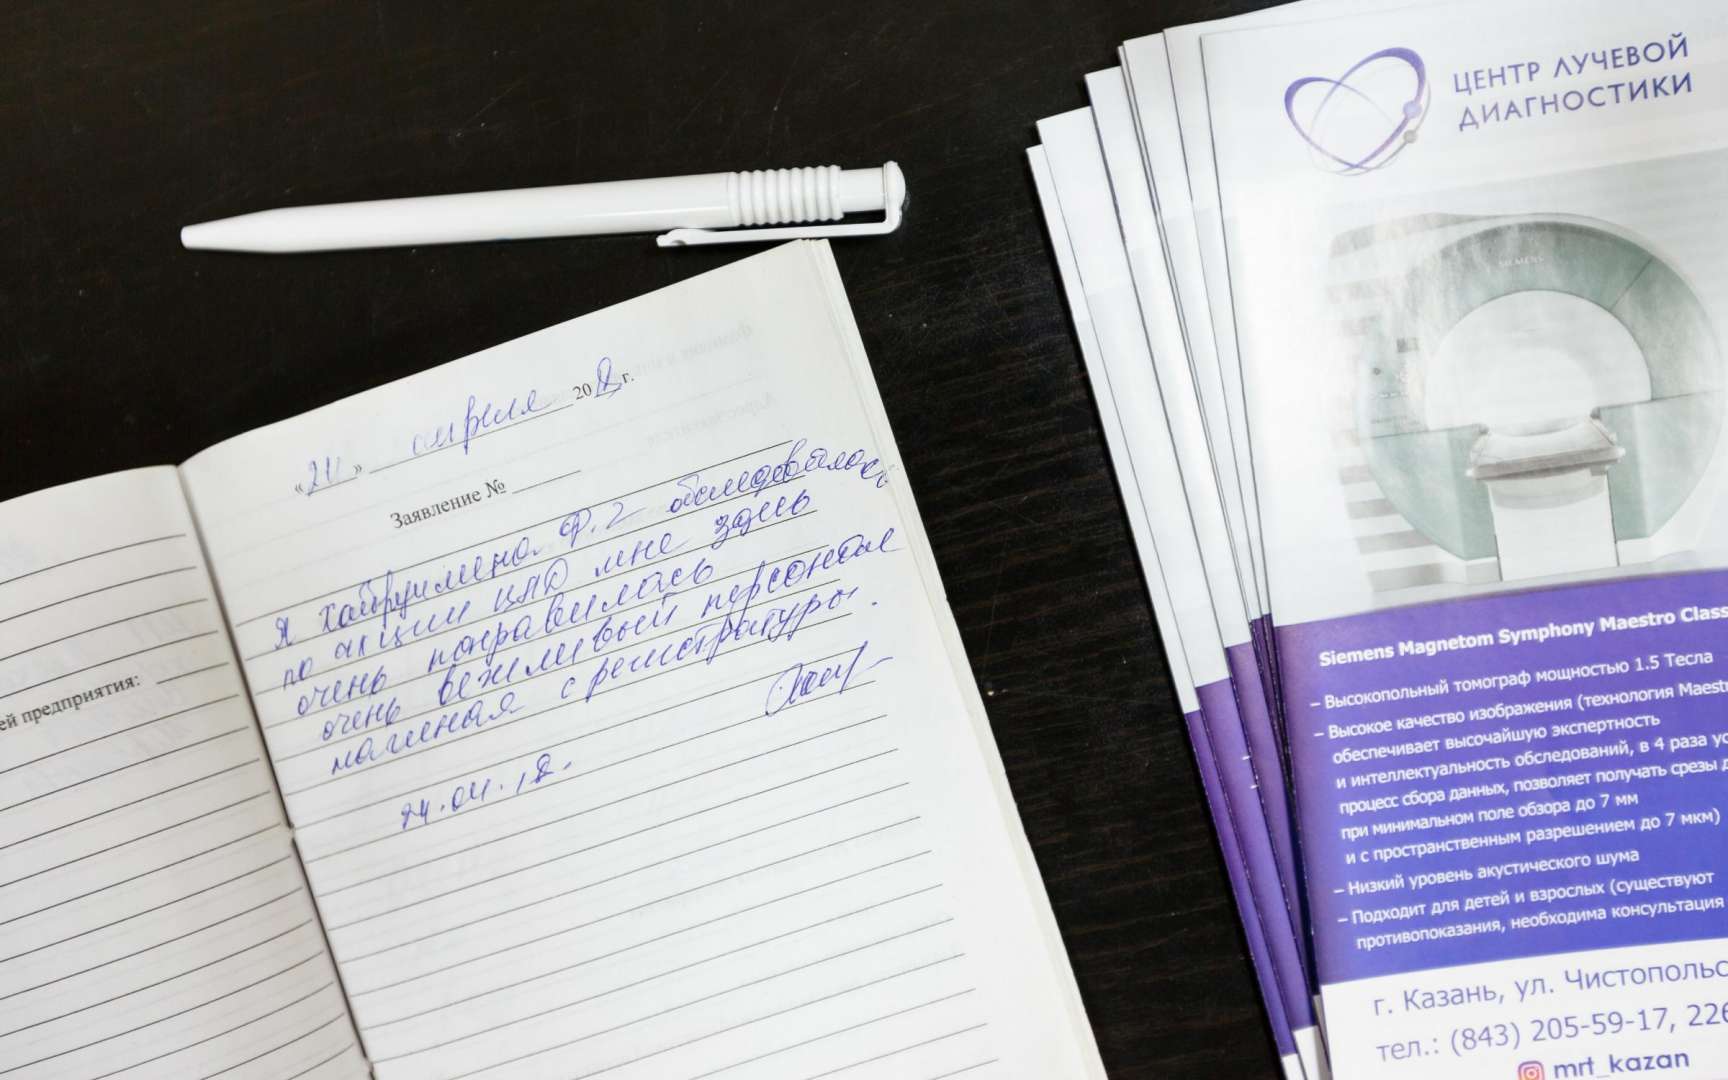 ей предприятия:
«24» апреля 2018 г.
Заявление №
Я Хабру Ф. 2 обследовалась
по акции ЦЛД мне здесь
очень понравилось
очень вежливый персонал
начиная с регистратуры.
24.04.18.
ЦЕНТР ЛУЧЕВОЙ
ДИАГНОСТИКИ
SIEMENS
Siemens Magnetom Symphony Maestro Class
– Высокопольный томограф мощностью 1.5 Тесла
– Высокое качество изображения (технология Maestr
обеспечивает высочайшую экспертность
и интеллектуальность обследований, в 4 раза ус
процесс сбора данных, позволяет получать срезы д
при минимальном поле обзора до 7 мм
и с пространственным разрешением до 7 мкм)
– Низкий уровень акустического шума
– Подходит для детей и взрослых (существуют
противопоказания, необходима консультация
г. Казань, ул. Чистопольс
тел.: (843) 205-59-17, 226
mrt_kazan